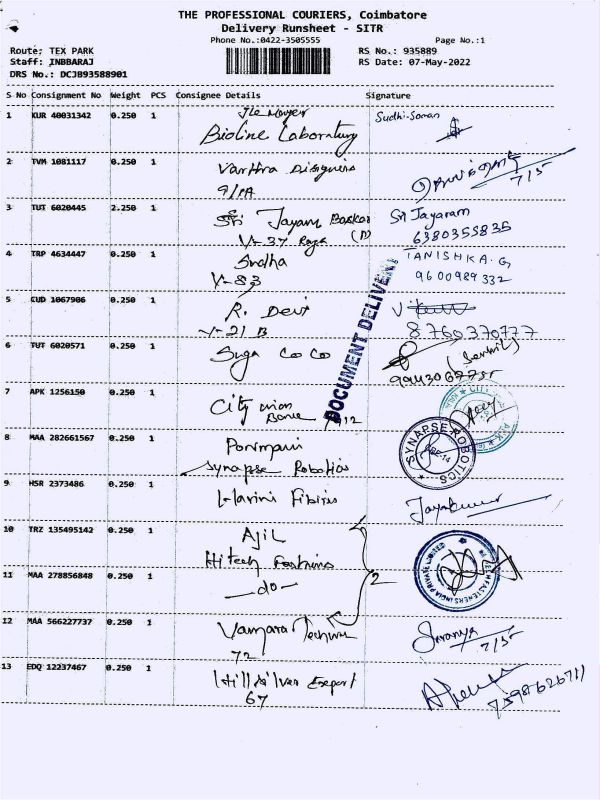 THE PROFESSIONAL COURIERS, Coimbatore
Delivery Runsheet - SITR
Phone No.:0422-3505555 Page No.:1
Route: TEX PARK RS No.: 935889
Staff: INBBARAJ RS Date: 07-May-2022
DRS No.: DCJB93588901
S No Consignment No Weight PCS Consignee Details Signature
1 KUR 40031342 0.250 1 Sudhi-Soman
Bioline Laboratory
2 TVM 1081117 0.250 1 Varthra Disigners
9/1A 7/5
3 TUT 6020445 2.250 1 Sri Jayam Baskar Sri Jayaram
V-37 6380355835
4 TRP 4634447 0.250 1 Sudha TANISHKA.G,
V-83 9600989332
5 CUD 1067906 0.250 1 R. Devi
V-21 B 8760370777
DOCUMENT DELIVERY
6 TUT 6020571 0.250 1 Suga Co Co (Senthil)
7 APK 1256150 0.250 1 City union
Bank
CITY
8 MAA 282661567 0.250 1 Ponmani
Synapse Robotics
SYNAPSE ROBOTICS
9 HSR 2373486 0.250 1 Harini Fibres Jayakumar
10 TRZ 135495142 0.250 1 AJIL
Hitech Fastners
HI-TECH FASTENERS INDIA PRIVATE LIMITED
11 MAA 278856848 0.250 1 -do- 2
12 MAA 566227737 0.250 1 Saranya
72 7/5
13 EDQ 12237467 0.250 1 Hill Silver Export
67 7598626711